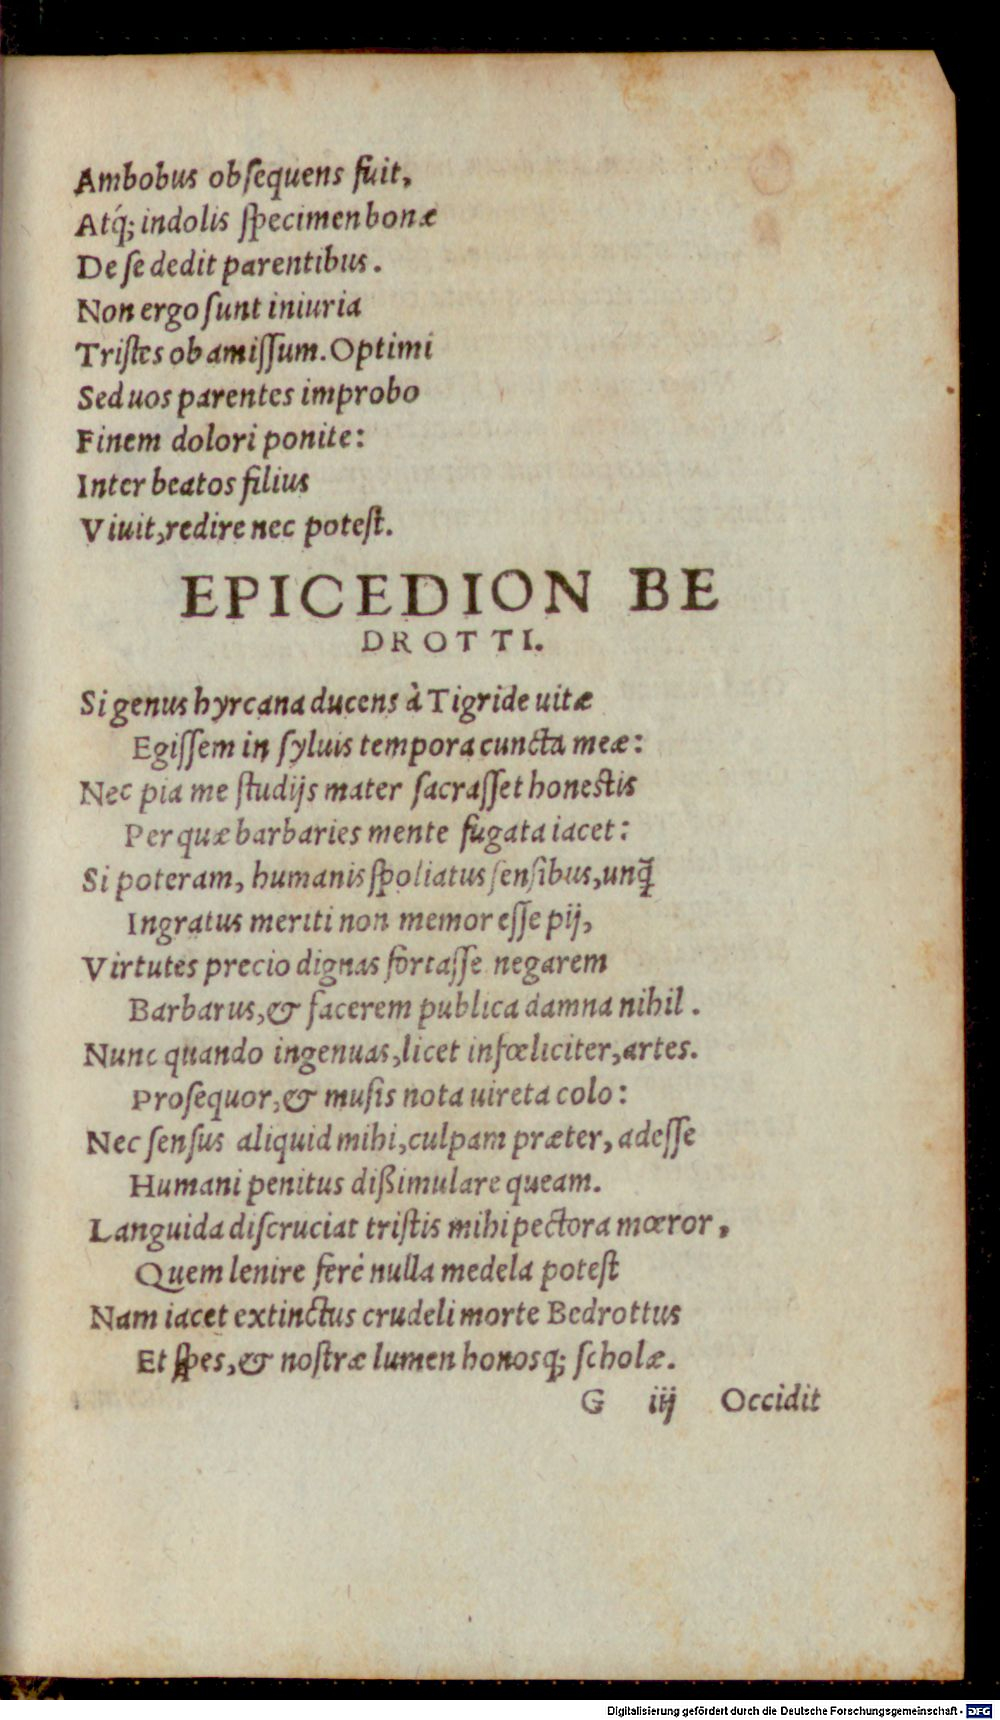 Ambobus obſequens fuit,
Atq́; indolis ſpecimen bonæ
De ſe dedit parentibus.
Non ergo ſunt iniuria
Triſtes ob amiſſum. Optimi
Sed uos parentes improbo
Finem dolori ponite:
Inter beatos filius
Viuit, redire nec poteſt.
EPICEDION BE
DROTTI.
Si genus hyrcana ducens à Tigride uitæ
Egiſſem in ſyluis tempora cuncta meæ:
Nec pia me ſtudijs mater ſacraſſet honestis
Per quæ barbaries mente fugata iacet:
Si poteram, humanis ſpoliatus ſenſibus, unq̃
Ingratus meriti non memor eſſe pij,
Virtutes precio dignas fortaſſe negarem
Barbarus, & facerem publica damna nihil.
Nunc quando ingenuas, licet infœliciter, artes.
Proſequor, & muſis nota uireta colo:
Nec ſenſus aliquid mihi, culpam præter, adeſſe
Humani penitus dißimulare queam.
Languida diſcruciat triſtis mihi pectora mœror,
Quem lenire ferè nulla medela poteſt
Nam iacet extinctus crudeli morte Bedrottus
Et ſpes, & noſtræ lumen honosq; ſcholæ.
G iij Occidit
Digitalisierung gefördert durch die Deutsche Forschungsgemeinschaft - DFG